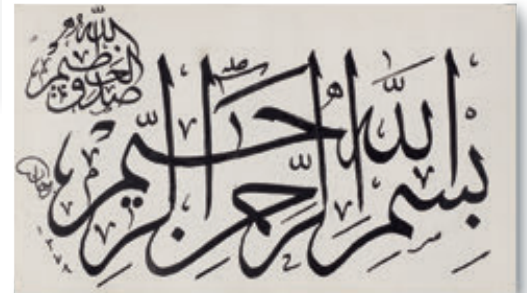 بِسْمِ اللهِ الرَّحْمٰنِ الرَّحِيْمِ
صدق الله العظيم